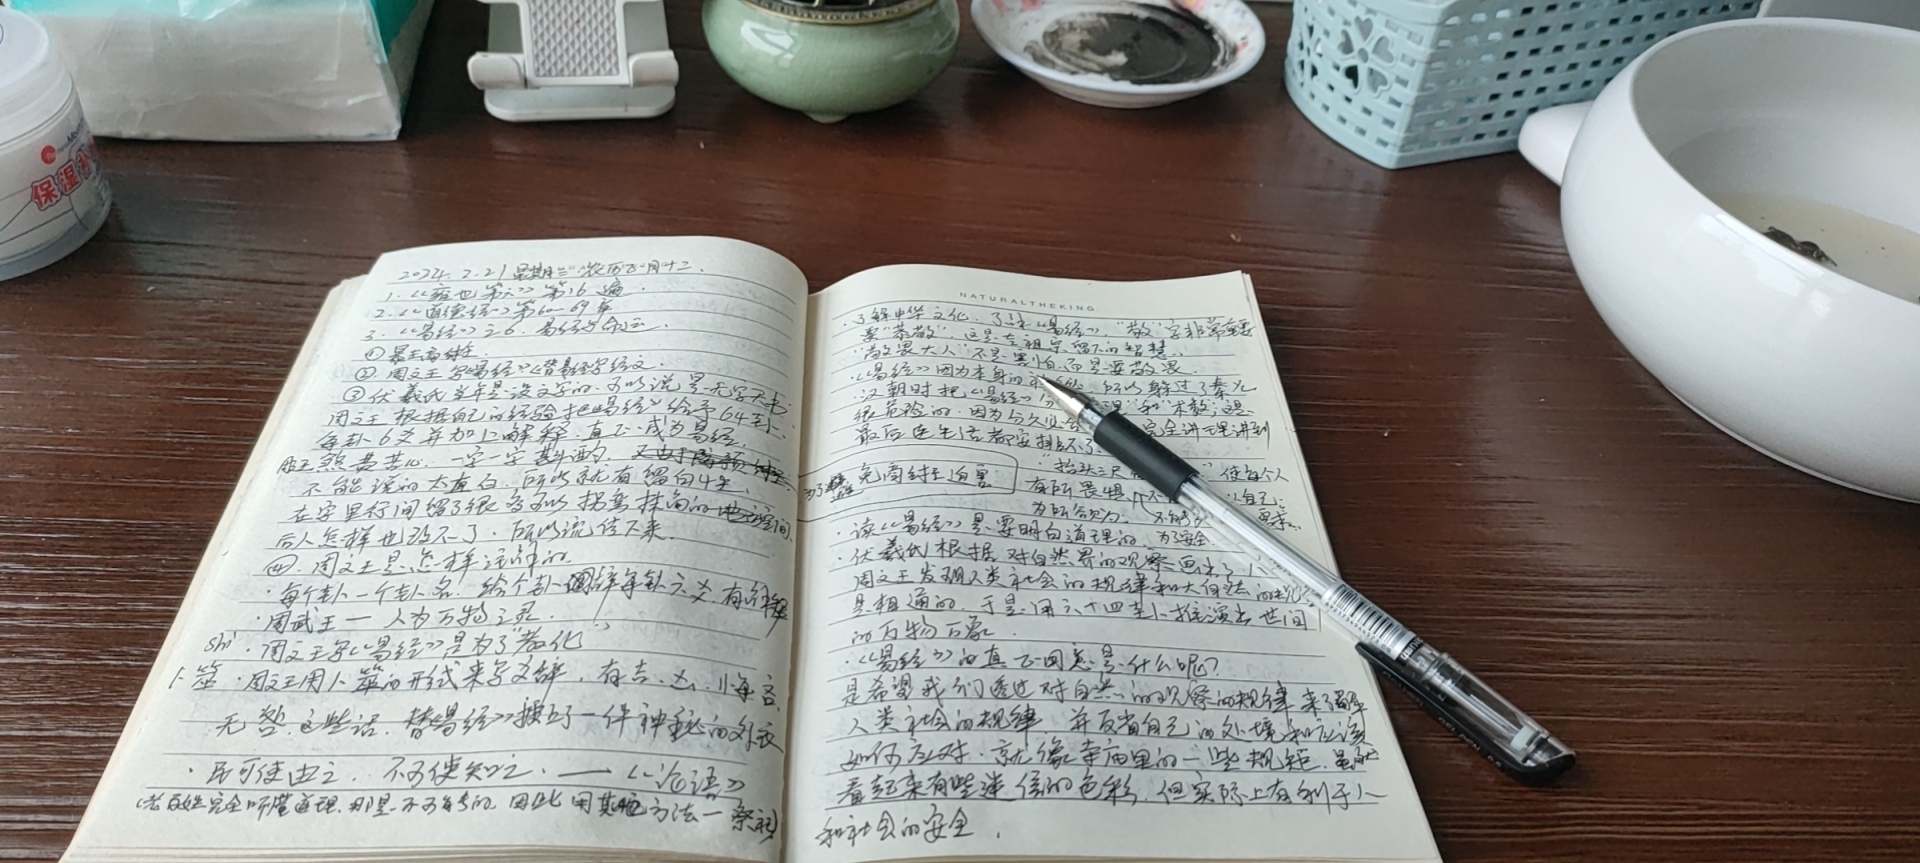 保湿
2024.2.21 星期三 农历正月十二.
1.《雍也第六》第16遍.
2.《道德经》第60—69章
3.《易经》26. 易经与命运.
① 暴王商纣王.
② 周文王写《易经》《替易经》写经文.
③ 伏羲氏当年是没文字的.可以说是无字天书.
周文王根据自己的经验把《易经》给予64卦.
每卦6爻并加上解释.真正成为易经.
煞费苦心.一字一字斟酌.
不能说的太直白.所以就有留白
在字里行间留了很多可以拐弯抹角的空间.
后人怎样也改不了.所以流传下来.
四.周文王是怎样注解的.
·每个卦一个卦名.给个卦辞每卦六爻.有解释
·周武王—人为万物之灵.
shì ·周文王写《易经》是为了"教化"
卜筮 ·周文王用卜筮的形式来写爻辞.有吉、凶、悔吝
无咎.这些话.替《易经》披了一件神秘的外衣
·民可使由之.不可使知之.——《论语》
(老百姓完全听懂道理.那是不可能的.因此用其他方法—祭祀)
NATURALTHEKING
·了解中华文化.了解《易经》."敬"字非常重要
要"恭敬".这是老祖宗留下的智慧.
"敬畏大人"不是害怕.而是要敬畏.
·《易经》因为本身的 所以躲过了秦火
·汉朝时把《易经》分 理"和"术数"这是
很危险的.因为 完全讲理讲到
最后连生活都安排不了.
"抬头三尺 " 使每个人
为了 免商纣王迫害
有所畏惧. 以自己
为所欲为.
·读《易经》是要明白道理的.
·伏羲氏根据对自然界的观察画出了八
周文王发现人类社会的规律和大自然的
是相通的.于是用六十四卦推演出世间
的万物万象.
·《易经》的真正用意是什么呢?
是希望我们透过对自然的观察的规律来了解
人类社会的规律.并反省自己的处境和应该
如何应对.就像寺庙里的一些规矩.虽然
看起来有些迷信的色彩.但实际上有利于人
和社会的安全.